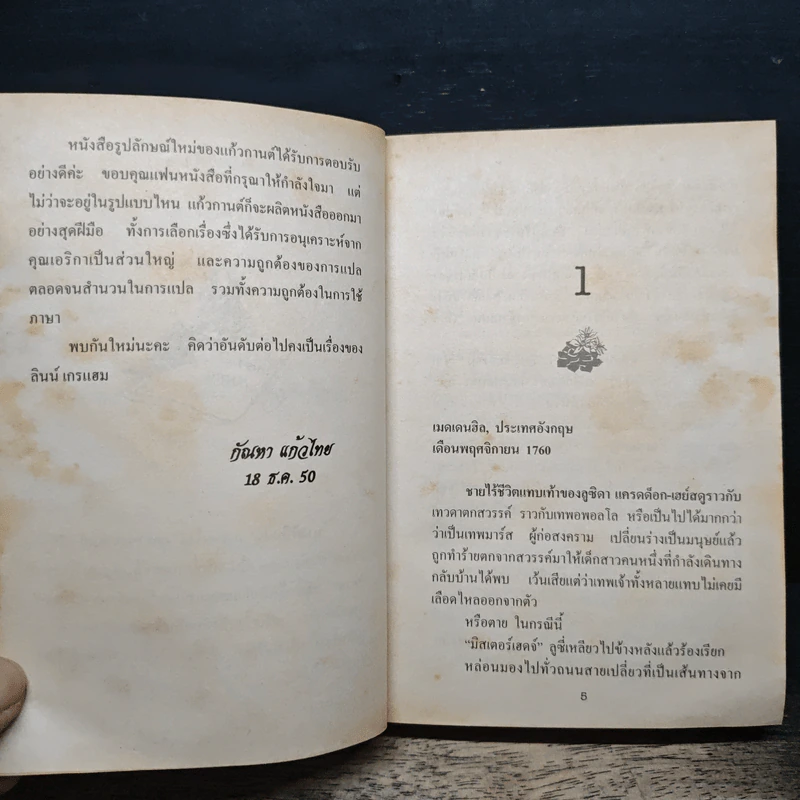 หนังสือรูปลักษณ์ใหม่ของแก้วกานต์ได้รับการตอบรับ
อย่างดีค่ะ ขอบคุณแฟนหนังสือที่กรุณาให้กำลังใจมา แต่
ไม่ว่าจะอยู่ในรูปแบบไหน แก้วกานต์ก็จะผลิตหนังสือออกมา
อย่างสุดฝีมือ ทั้งการเลือกเรื่องซึ่งได้รับการอนุเคราะห์จาก
คุณเอริกาเป็นส่วนใหญ่ และความถูกต้องของการแปล
ตลอดจนสำนวนในการแปล รวมทั้งความถูกต้องในการใช้
ภาษา
พบกันใหม่นะคะ คิดว่าอันดับต่อไปคงเป็นเรื่องของ
ลินน์ เกรแฮม
กัณหา แก้วไทย
18 ธ.ค. 50
1
เมดเดนฮิล, ประเทศอังกฤษ
เดือนพฤศจิกายน 1760
ชายไร้ชีวิตแทบเท้าของลูซินดา แครดด็อก-เฮย์สดูราวกับ
เทวดาตกสวรรค์ ราวกับเทพอพอลโล หรือเป็นไปได้มากกว่า
ว่าเป็นเทพมาร์ส ผู้ก่อสงคราม เปลี่ยนร่างเป็นมนุษย์แล้ว
ถูกทำร้ายตกจากสวรรค์มาให้เด็กสาวคนหนึ่งที่กำลังเดินทาง
กลับบ้านได้พบ เว้นเสียแต่ว่าเทพเจ้าทั้งหลายแทบไม่เคยมี
เลือดไหลออกจากตัว
หรือตาย ในกรณีนี้
“มิสเตอร์เฮดจ์” ลูซี่เหลียวไปข้างหลังแล้วร้องเรียก
หล่อนมองไปทั่วถนนสายเปลี่ยวที่เป็นเส้นทางจาก
5